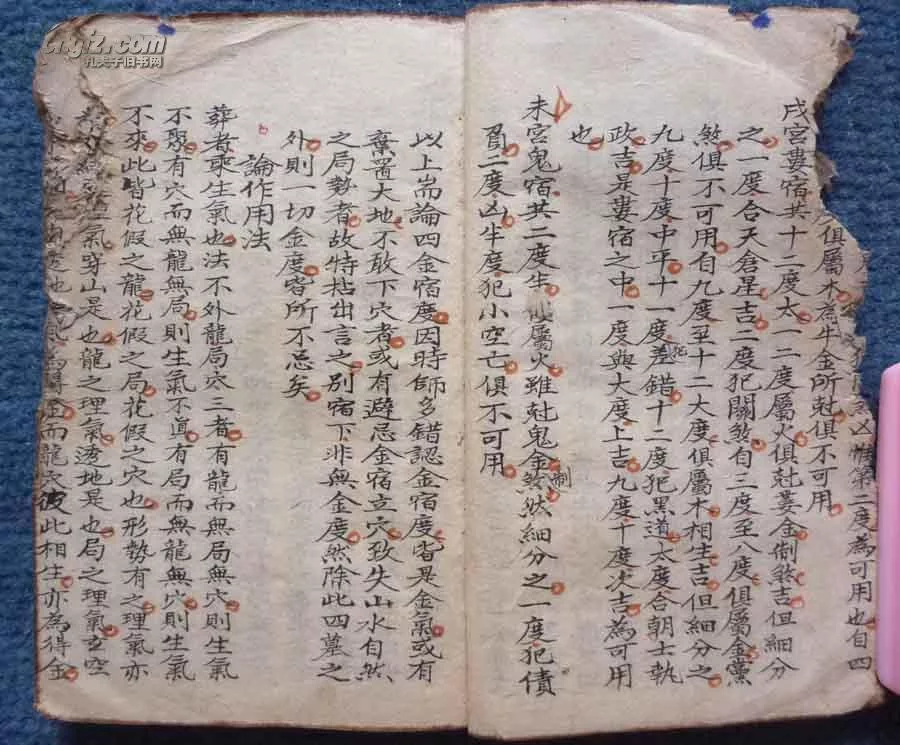 凶惟第二度為可用也自四
俱屬木為牛金所尅俱不可用
戌宮婁宿共十二度太一二度屬火俱尅婁金制煞吉但細分
之一度合天倉星吉二度犯關煞自三度至八度俱屬金黨
煞俱不可用自九度至十二大度俱屬木相生吉但細分之
九度十度中平十一度犯差錯十二度犯黑道太度合朝士執
政吉是婁宿之中一度與大度上吉九度十度次吉為可用
也
未宮鬼宿共二度半俱屬火雖尅鬼金制煞然細分之一度犯債
負二度凶半度犯小空亡俱不可用
以上耑論四金宿度因時師多錯認金宿度皆是金氣或有
棄置大地不敢下穴者或有避忌金宿立穴致失山水自然
之局勢者故特拈出言之別宿下非無金度然除此四墓之
外則一切金度皆所不忌矣
論作用法
葬者乘生氣也法不外龍局穴三者有龍而無局無穴則生氣
不聚有穴而無龍無局則生氣不真有局而無龍無穴則生氣
不來此皆花假之龍花假之局花假之穴也形勢有之理氣亦
氣穿山是也龍之理氣透地是也局之理氣空
也為得金而龍穴彼此相生亦為得金
孔夫子旧书网